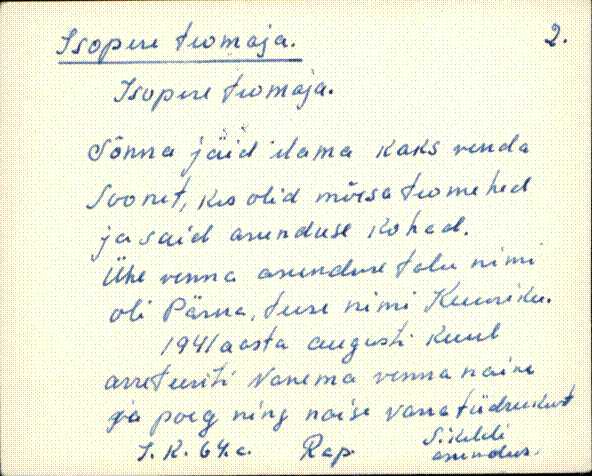 Isopere teomaja. 2.
Isopere teomaja.
Sõnna jäid elama kaks venda
Soonet, kes olid mõisa teomehed
ja said asunduse kohad.
Ühe venna asundusetalu nimi
oli Pärna, teise nimi Kuusiku.
1941 aasta augusti kuul
arreteeriti vanema venna naine
ja poeg ning naise vanatüdrukust
I. K. 64. a. Rap.
asundus.